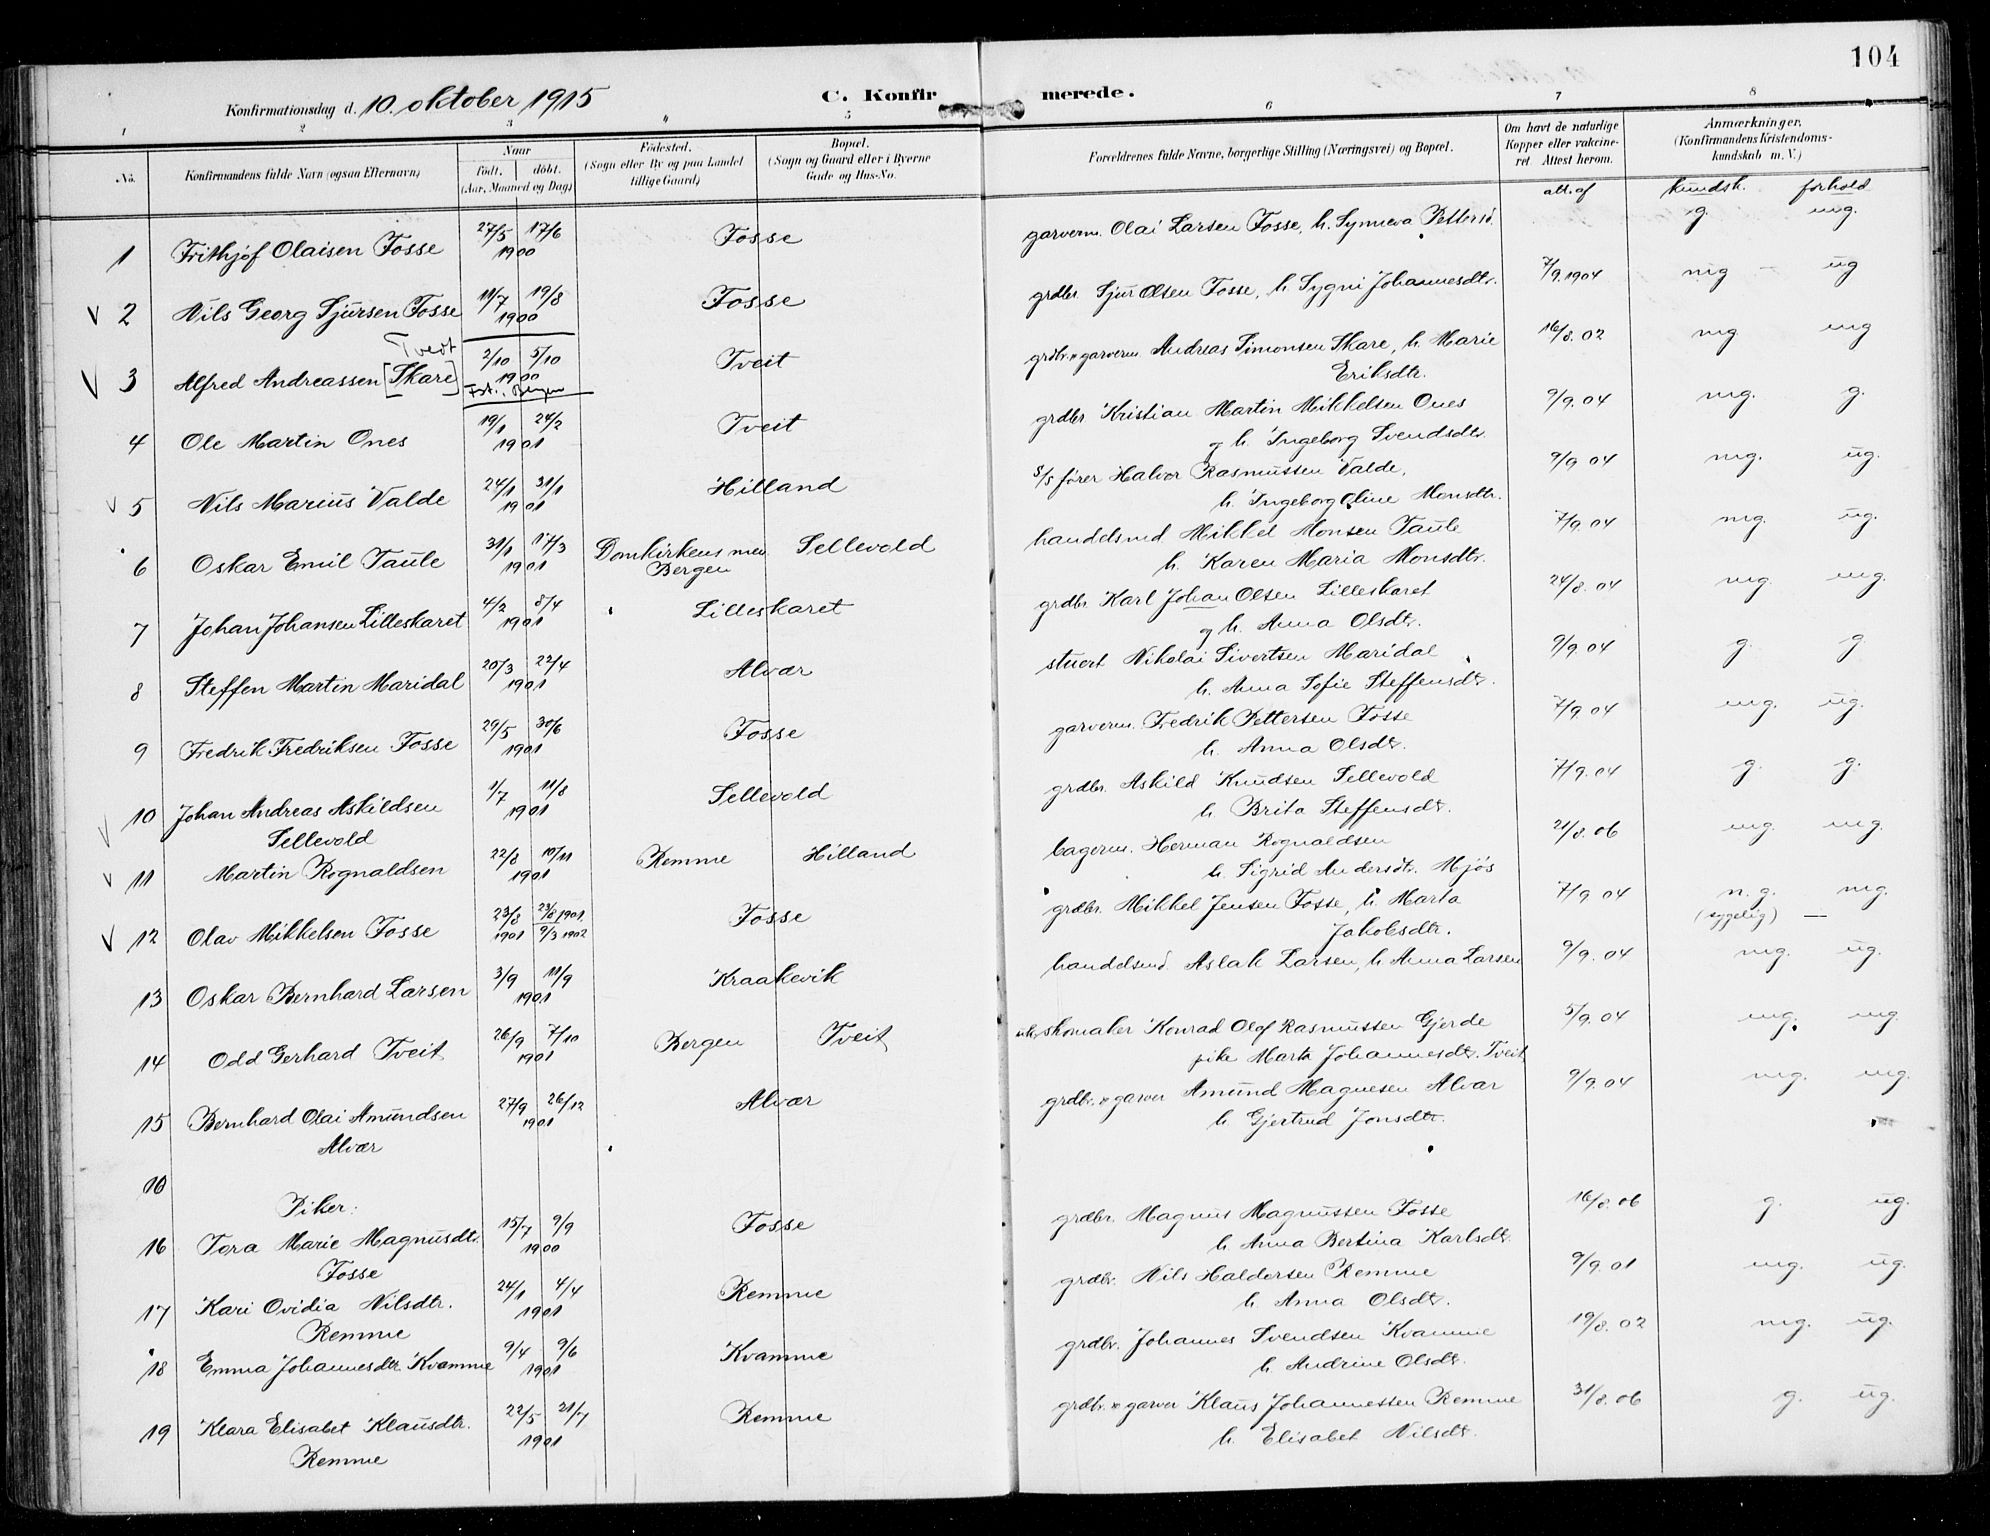 104
Konfirmationsdag d. 10. oktober 1915 C. Konfirmerede.
1 2 3 4 5 6 7 8
No. Konfirmandens fulde Navn (ogsaa Efternavn) Naar født. døbt. (Aar, Maaned og Dag) Fødested. (Sogn eller By og paa Landet tillige Gaard) Bopæl. (Sogn og Gaard eller i Byerne Gade og Hus-No. Forældrenes fulde Navne, borgerlige Stilling (Næringsvei) og Bopæl. Om havt de naturlige Kopper eller vaccineret. Attest herom. Anmærkninger. (Konfirmandens Kristendomskundskab m. V.)
att. af kundsk. forhold
1 Frithjof Olaisen Fosse 27/5 17/6 1900 Fosse garverm. Olai Larsen Fosse, h. Synneva Pettersd. g. mg.
2 Nils Georg Sjursen Fosse 11/7 19/8 1900 Fosse grdbr. Sjur Olsen Fosse, h. Sygni Johannesdtr. 7/9.1904 mg ug
Tvedt
3 Alfred Andreassen [Skare] 2/10 5/10 1900 Tveit grdbr. garverm Andreas Simonsen Skare, h. Marie 16/8.02 mg mg
Bergen Eriksdtr.
4 Ole Martin Ones 19/1 24/2 1901 Tveit grdbr Kristian Martin Mikkelsen Ones 9/9.04 mg. g.
og h. Ingeborg Svendsdtr.
5 Nils Marius Valde 24/1 31/1 1901 Hilland s/s fører Halvor Rasmussen Valde, 9/9 04 mg. ug.
h. Ingeborg Oline Monsdtr.
6 Oskar Emil Taule 31/1 17/3 1901 Domkirkens men. Bergen Sellevold handelsmd Mikkel Monsen Taule 7/9.04 mg. ug.
h. Karen Maria Monsdtr.
7 Johan Johansen Lilleskaret 4/2 8/4 1901 Lilleskaret grdbr Karl Johan Olsen Lilleskaret 24/8.04 mg. mg.
og h. Anna Olsdtr.
8 Steffen Martin Maridal 20/3 22/4 1901 Alvær stuert Nikolai Sivertsen Maridal 9/9.04 g. g
h. Anna Sofie Steffensdtr.
9 Fredrik Fredriksen Fosse 29/5 30/6 1901 Fosse garverm. Fredrik Pettersen Fosse 7/9.04 mg. ug.
h. Anna Olsdtr.
10 Johan Andreas Askildsen 1/7 11/8 1901 Sellevold grdbr. Askild Knudsen Sellevold 7/9.04 g. g.
Sellevold h. Brita Steffensdtr.
11 Martin Rognaldsen 22/8 10/11 1901 Remme Hilland bagerm. Herman Rognaldsen 21/8.06 mg. mg.
h. Sigrid Andersdtr. Mjøs
12 Olav Mikkelsen Fosse 23/8 1901 23/8 1901. 9/3 1902 Fosse grdbr. Mikkel Jensen Fosse, h. Marta 7/9 04 n. g. (sygelig) — mg.
Jakobsdtr.
13 Oskar Bernhard Larsen 3/9 11/9 1901 Kraakevik handelsmd. Aslak Larsen, h. Anna Larsen 9/9.04 mg. ug.
14 Odd Gerhard Tveit 26/9 7/10 1901 Bergen Tveit skomaker Konrad Olof Rasmussen Gjerde 5/9.04 mg. mg.
pike Marta Johannesdtr. Tveit
15 Bernhard Olai Amundsen 27/9 26/12 1901 Alvær grdbr. garver Amund Magnesen Alvær 9/9.04 mg. mg.
Alvær h. Gjertrud Jonsdtr.
10
Piker:
16 Tora Marie Magnusdtr. 15/7 9/9 1900 Fosse grdbr. Magnus Magnussen Fosse 16/8.06 g. ug.
Fosse h. Anna Bertina Karlsdtr.
17 Kari Ovidia Nilsdtr. 24/1 4/4 1901 Remme grdbr. Nils Haldorsen Remme 9/9.01 mg. ug.
Remme h. Anna Olsdtr.
18 Emma Johannesdtr. Kvamme 9/4 9/6 1901 Kvamme grdbr. Johannes Svendsen Kvamme 19/8.02 mg. ug.
h. Andrine Olsdtr.
19 Klara Elisabet Klausdtr. 22/5 21/7 1901 Remme grdbr. garver Klaus Johannessen Remme 31/8.06 g. ug.
Remme h. Elisabet Nilsdtr.